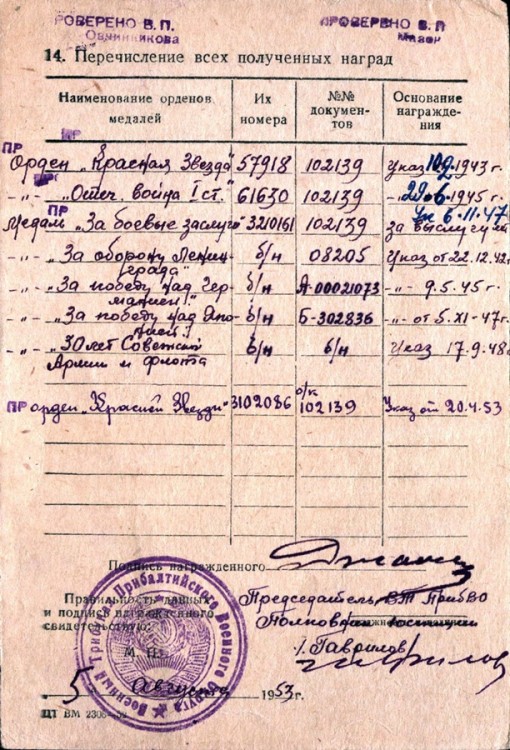 РОВЕРЕНО В. П. ПРОВЕРЕНО В. П
Овчинникова Мизен
14. Перечисление всех полученных наград
Наименование орденов медалей Их номера №№ документов Основание награждения
ПР ПР
Орден „Красная Звезда" 57918 102139 Указ 1943 г.
ПР
-„- „Отеч. война I ст." 61630 102139 -„- 1945 г.
ПР Ук 6.11.47
Медаль „За боевые заслуги" 3210161 102139 За выслугу лет
-„- „За оборону Ленинграда" б/н 08205 Указ от 22.12.42г.
-„- „За победу над Германией" б/н А-00021073 -„- 9.5.45 г.
-„- „За победу над Японией" б/н Б-302836 -„- от 5.XI-47г.
-„- „30 лет Советской б/н б/н Указ 17.9.48г
Армии и флота
о/к
ПР орден „Красной Звезды" 3102086 102139 Указ от 20.4.53
Подпись награжденного
Правильность данных Председатель ВТ ПрибВО
и подписи награжденного Полковник юстиции
свидетельствую: /. Гаврилов/
М. П.
Военный Трибунал Прибалтийского Военного Округа
5 Августа 1953г.
ЦТ ВМ 2306